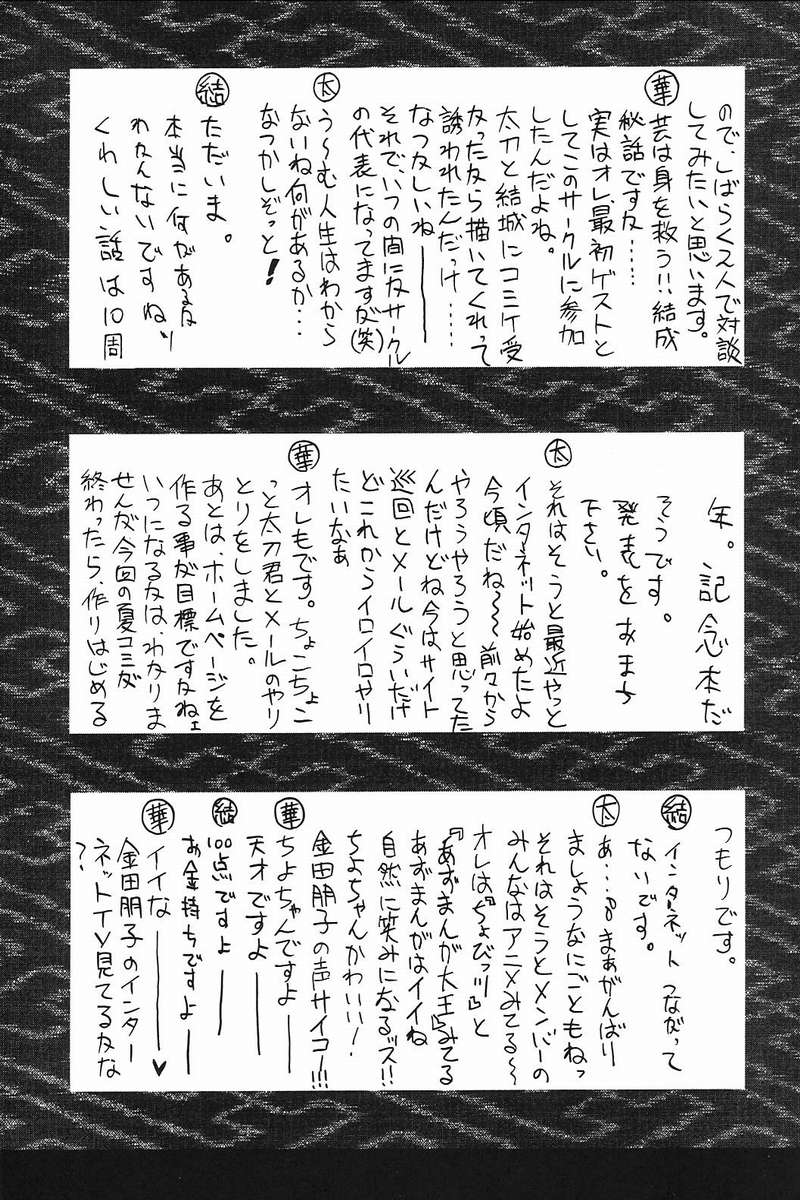 ので、しばらく3人で対談
してみたいと思います。
華 芸は身を救う!!結成
秘話ですな……
実はオレ、最初ゲストと
してこのサークルに参加
したんだよね。
太刀と結城にコミケ受
かったなら描いてくれって
誘われたんだっけ……
なつかしいね――
それで、いつの間にかサークル
の代表になってますが(笑)
太 う〜む人生はわから
ないね何があるか…
なつかしぞっと!
結 ただいま。
本当に何があるか
わかんないですねぃ
くわしい話は10周
年。記念本だ
そうです。
発表をおまち
下さい。
太 それはそうと最近やっと
インターネット始めたよ
今頃だね〜〜前々から
やろうやろうと思ってた
んだけどね今はサイト
巡回とメールぐらいだけ
どこれからイロイロやり
たいなぁ
華 オレもです。ちょこちょこ
っと太刀君とメールのやり
とりをしました。
あとは、ホームページを
作る事が目標ですかねェ
いつになるかは、わかりま
せんが今回の夏コミが
終わったら、作りはじめる
つもりです。
結 インターネットつながって
ないです。
太 あ…っ。まぁがんばり
ましょうなにごともねっ
それはそうとメンバーの
みんなはアニメみてる〜
オレは『ちょびっツ』と
『あずまんが大王』みてる
あずまんがはイイね
自然に笑みになるッス!!
ちよちゃんかわいい!
金田朋子の声サイコー!!!
華 ちよちゃんですよ――
天才ですよ――
結 100点ですよ――
お金持ちですよ――
華 イイな――♥
金田朋子のインター
ネットTV見てるかな
?